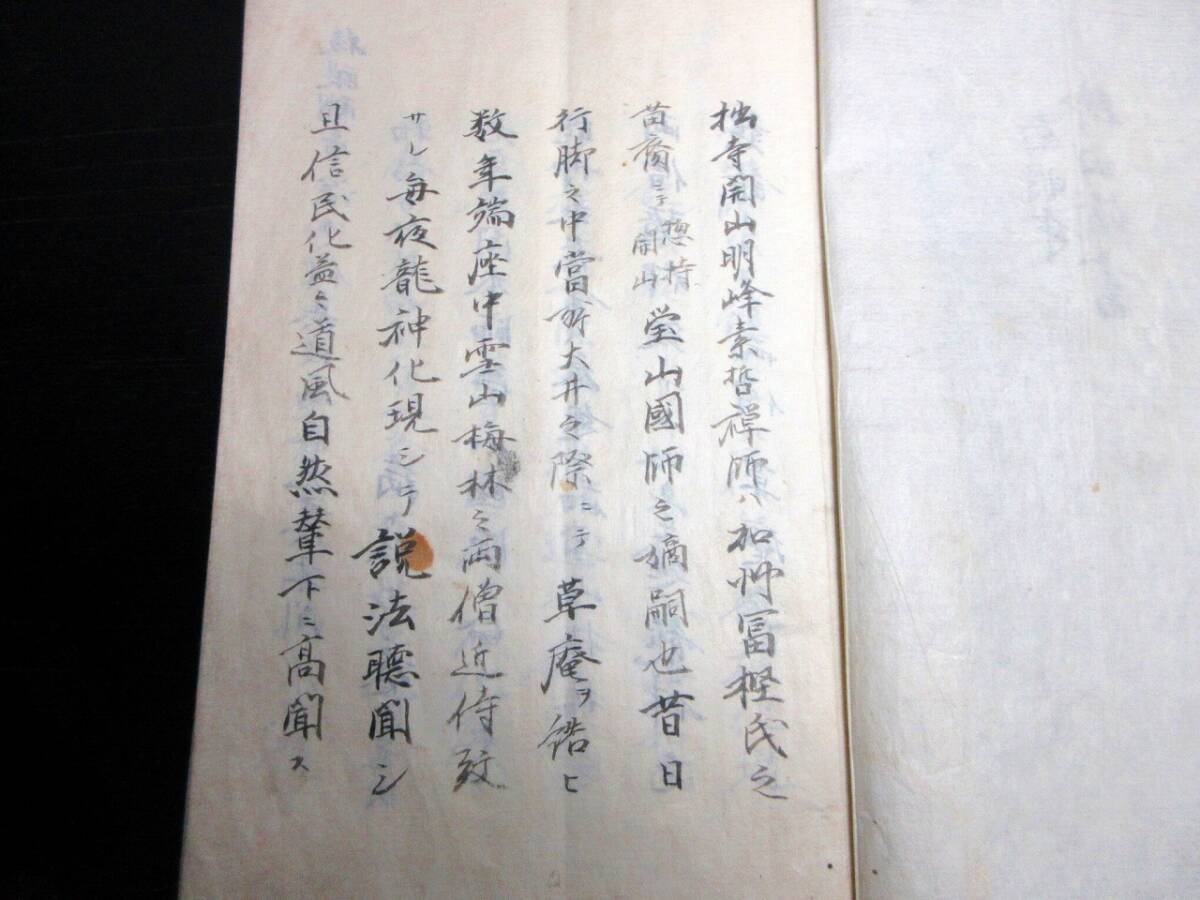 拙寺開山明峰素哲禅師ハ加州冨樫氏之
苗裔ニテ惣持開山瑩山國師之嫡嗣也昔日
行脚之中當所大井之際ニテ草庵ヲ結ヒ
数年端座中雲山梅林之両僧近侍致
サレ毎夜龍神化現シテ説法聴聞シ
且信民化益ニ道風自然輦下ニ高聞ス